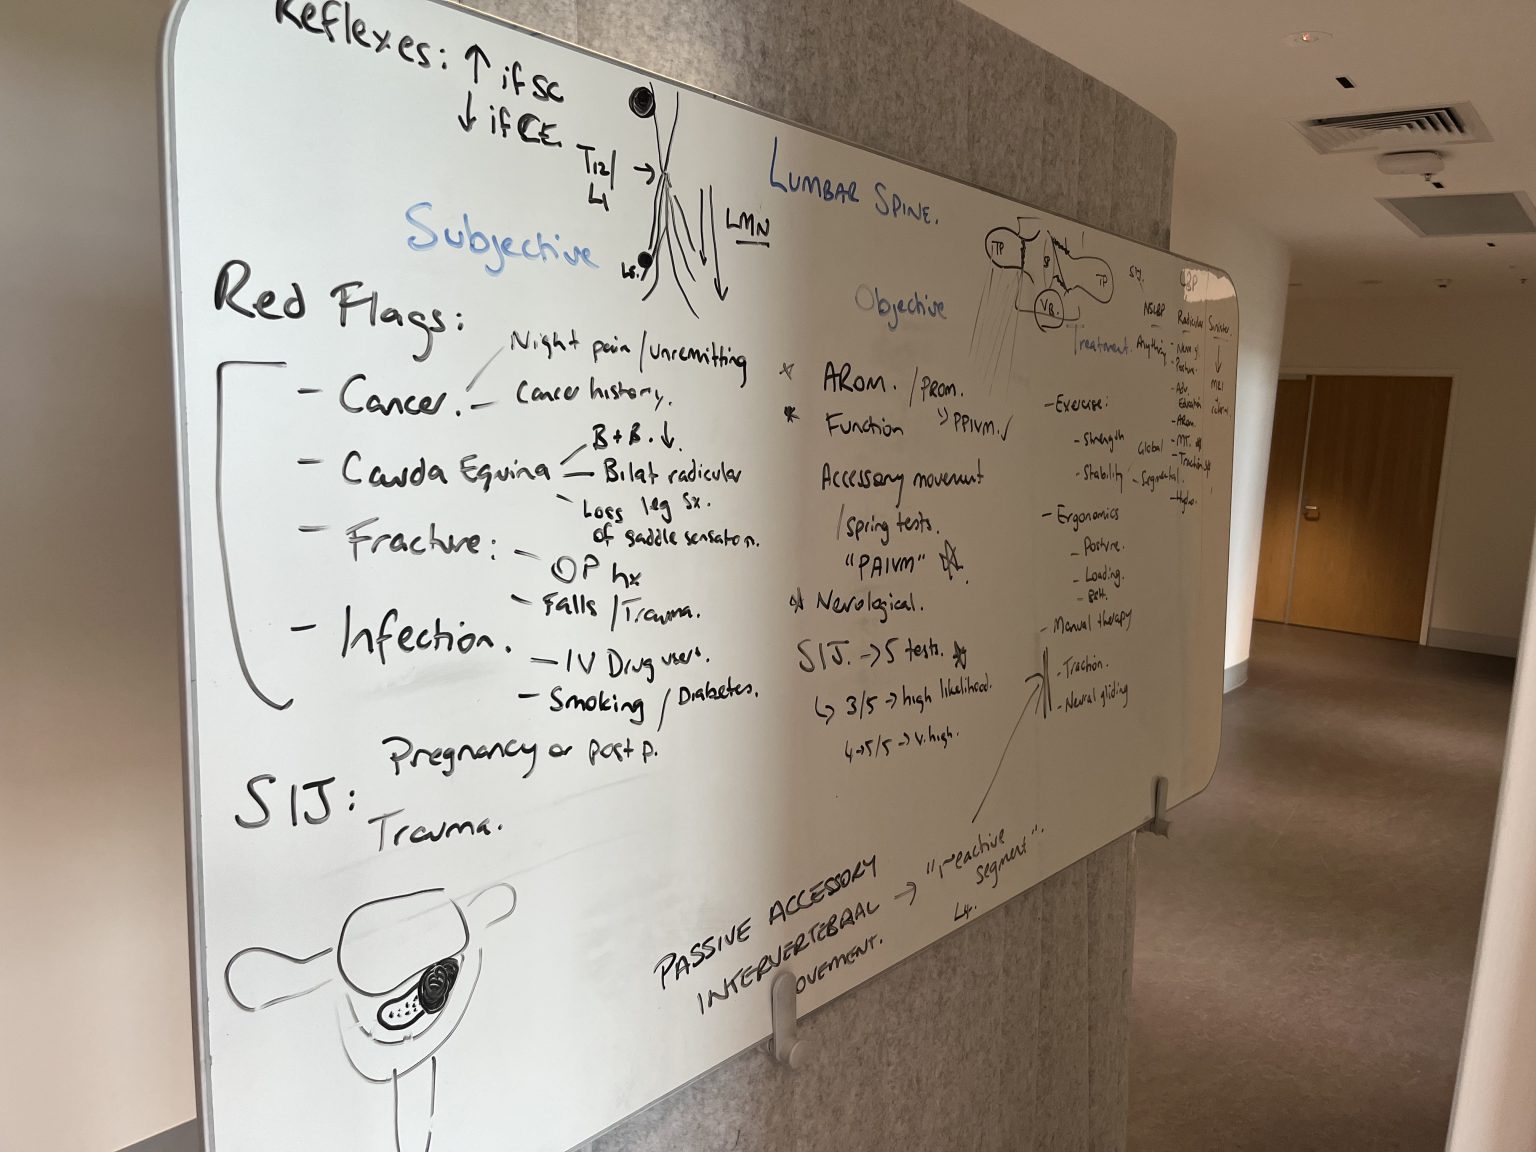 Reflexes: ↑ if SC
↓ if CE.
T12/
L1
LMN
LUMBAR SPINE.
Subjective
Red Flags:
- Cancer.
Night pain / unremitting
- Cancer history.
- Cauda Equina
B + B. ↓
- Bilat radicular
leg sx.
- Loss
of saddle sensation.
- Fracture:
- OP hx
- Falls / Trauma.
- Infection.
- IV Drug users.
- Smoking / Diabetes.
SIJ:
Pregnancy or post p.
Trauma.
Objective
* AROM. / PROM.
* Function
PPIVM. ✓
Accessory movement
/ spring tests.
"PAIVM" ☆
* Neurological.
SIJ. → 5 tests. ☆
↳ 3/5 → high likelihood.
4→5/5 → v. high.
PASSIVE ACCESSORY
INTERVERTEBRAL
OVEMENT.
→ "reactive
segment".
L4.
TP
SP
TP
VB.
Treatment.
- Exercise:
- Strength
- Stability
Global
- Segmental.
- Ergonomics
- Posture.
- Loading.
- Manual therapy
- Traction.
- Neural gliding
LBP
NSLBP
Anything
Radicular
- Posture
- Adv.
Education
- AROM.
- MT.
- Traction
- Hydro.
Sinister.
↓
MRI